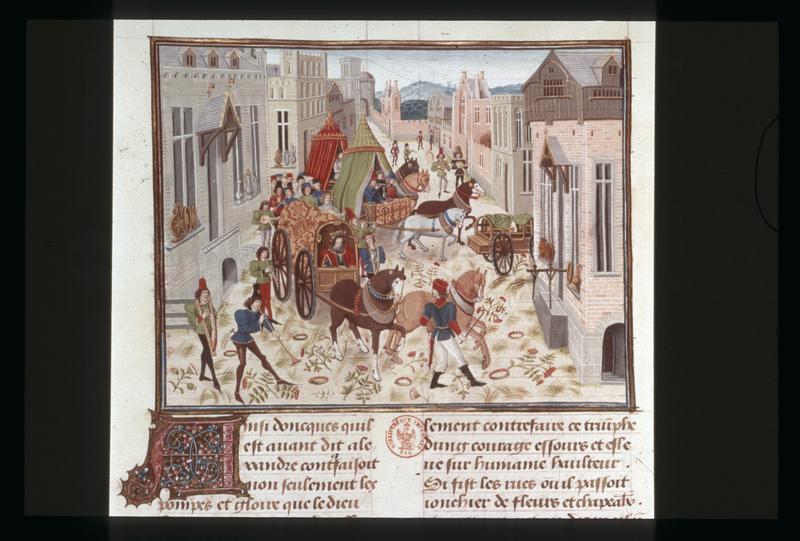 Ainsi doncques quil
est auant dit ale
xandre contrfaisoit
non seulement les
pompes et gloire que le dieu
lement contrefaire ce triuphe
dung courage essours et esle
ue sur humaine haulteur.
Si fist les rues ou il passoit
ionchier de fleurs et chapeaulx.